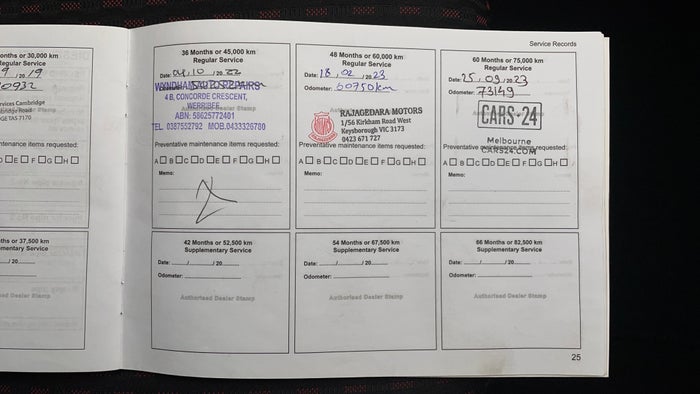 Service Records
onths or 30,000 km
Regular Service
9 / 20 19
0932
rvices Cambridge
GE TAS 7170
ntenance items requested:
D E F G H
36 Months or 45,000 km
Regular Service
Date: 04, 10 / 20 22
Odometer:
WYNDHAM AUTO REPAIRS
4 B, CONCORDE CRESCENT,
WERRIBEE
ABN: 58625772401
TEL 0387552792 MOB.0433326780
Preventative maintenance items requested:
A B C D E F G H
Memo:
48 Months or 60,000 km
Regular Service
Date: 18, 02 / 20 23
Odometer: 60750km
RAJAGEDARA MOTORS
1/56 Kirkham Road West
Keysborough VIC 3173
0423 671 727
Preventative maintenance items requested:
A B C D E F G H
Memo:
60 Months or 75,000 km
Regular Service
Date: 25, 09 / 20 23
Odometer: 73149
CARS-24
Melbourne
CARS24.COM
Preventative maintenance items requested:
A B C D E F G H
Memo:
ths or 37,500 km
mentary Service
/ 20
ised Dealer Stamp
42 Months or 52,500 km
Supplementary Service
Date: / / 20
Odometer:
Authorised Dealer Stamp
54 Months or 67,500 km
Supplementary Service
Date: / / 20
Odometer:
Authorised Dealer Stamp
66 Months or 82,500 km
Supplementary Service
Date: / / 20
Odometer:
Authorised Dealer Stamp
25